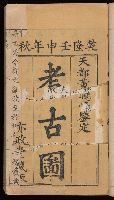 乾隆壬申年秋
天都黃曉峰鑒定
考古圖
亦政堂藏板